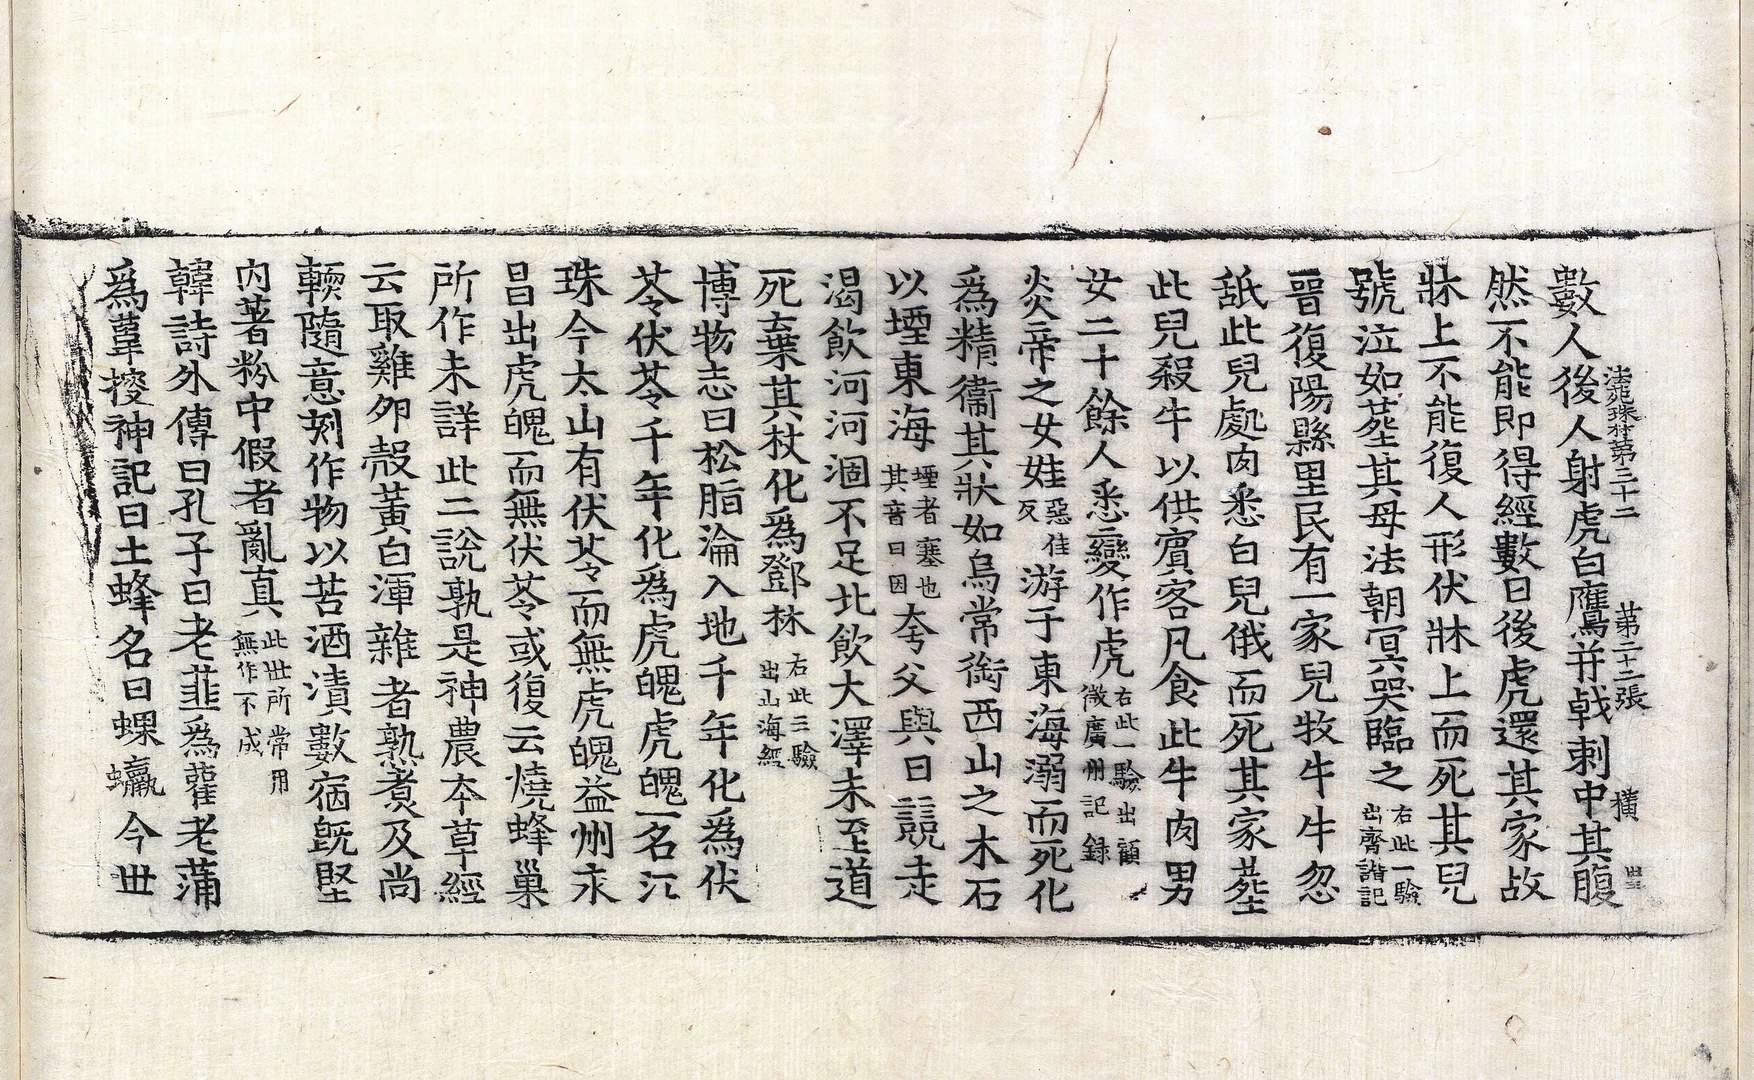 法苑珠林第三十二 第二十三張 橫
數人後人射虎白鷹并戟刺中其腹
然不能即得經數日後虎還其家故
牀上不能復人形伏牀上而死其兒
號泣如葬其母法朝冥哭臨之右此一驗出齊諧記
晉復陽縣里民有一家兒牧牛牛忽
舐此兒處肉悉白兒俄而死其家葬
此兒殺牛以供賓客凡食此牛肉男
女二十餘人悉變作虎右此一驗出顧微廣州記錄
炎帝之女娃惡佳反游于東海溺而死化
爲精衛其狀如烏常銜西山之木石
以堙東海堙者塞也其音曰因夸父與日競走
渴飲河河涸不足北飲大澤未至道
死棄其杖化爲鄧林右此三驗出山海經
博物志曰松脂淪入地千年化爲伏
苓伏苓千年化爲虎魄虎魄一名江
珠今太山有伏苓而無虎魄益州永
昌出虎魄而無伏苓或復云燒蜂巢
所作未詳此二說孰是神農本草經
云取雞卵殼黃白渾雜者熟煑及尚
輭隨意刻作物以苦酒漬數宿旣堅
內著粉中假者亂真此世所常用無作不成
韓詩外傳曰孔子曰老韭爲雚老蒲
爲葦搜神記曰土蜂名曰蜾蠃今世